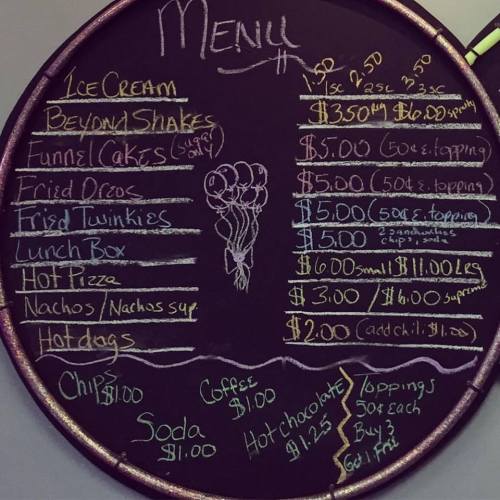 MENU
ICE CREAM 1.50 1sc 2.50 2sc 3.50 3sc
BEYOND SHAKES $3.50 Reg $6.00 specialty
FUNNEL CAKES (sugar only) $5.00 (50¢ E. topping)
Fried Oreos $5.00 (50¢ E. topping)
Fried Twinkies $5.00 (50¢ E. topping)
Lunch Box $5.00 2 sandwiches chips, soda
Hot Pizza $6.00 small $11.00 LRG
Nachos/Nachos sup $3.00 / $6.00 supreme
Hotdogs $2.00 (add chili $1.00)
Chips $1.00
Coffee $1.00
Soda $1.00
Hot chocolate $1.25
Toppings
50¢ Each
Buy 3
Get 1 Free